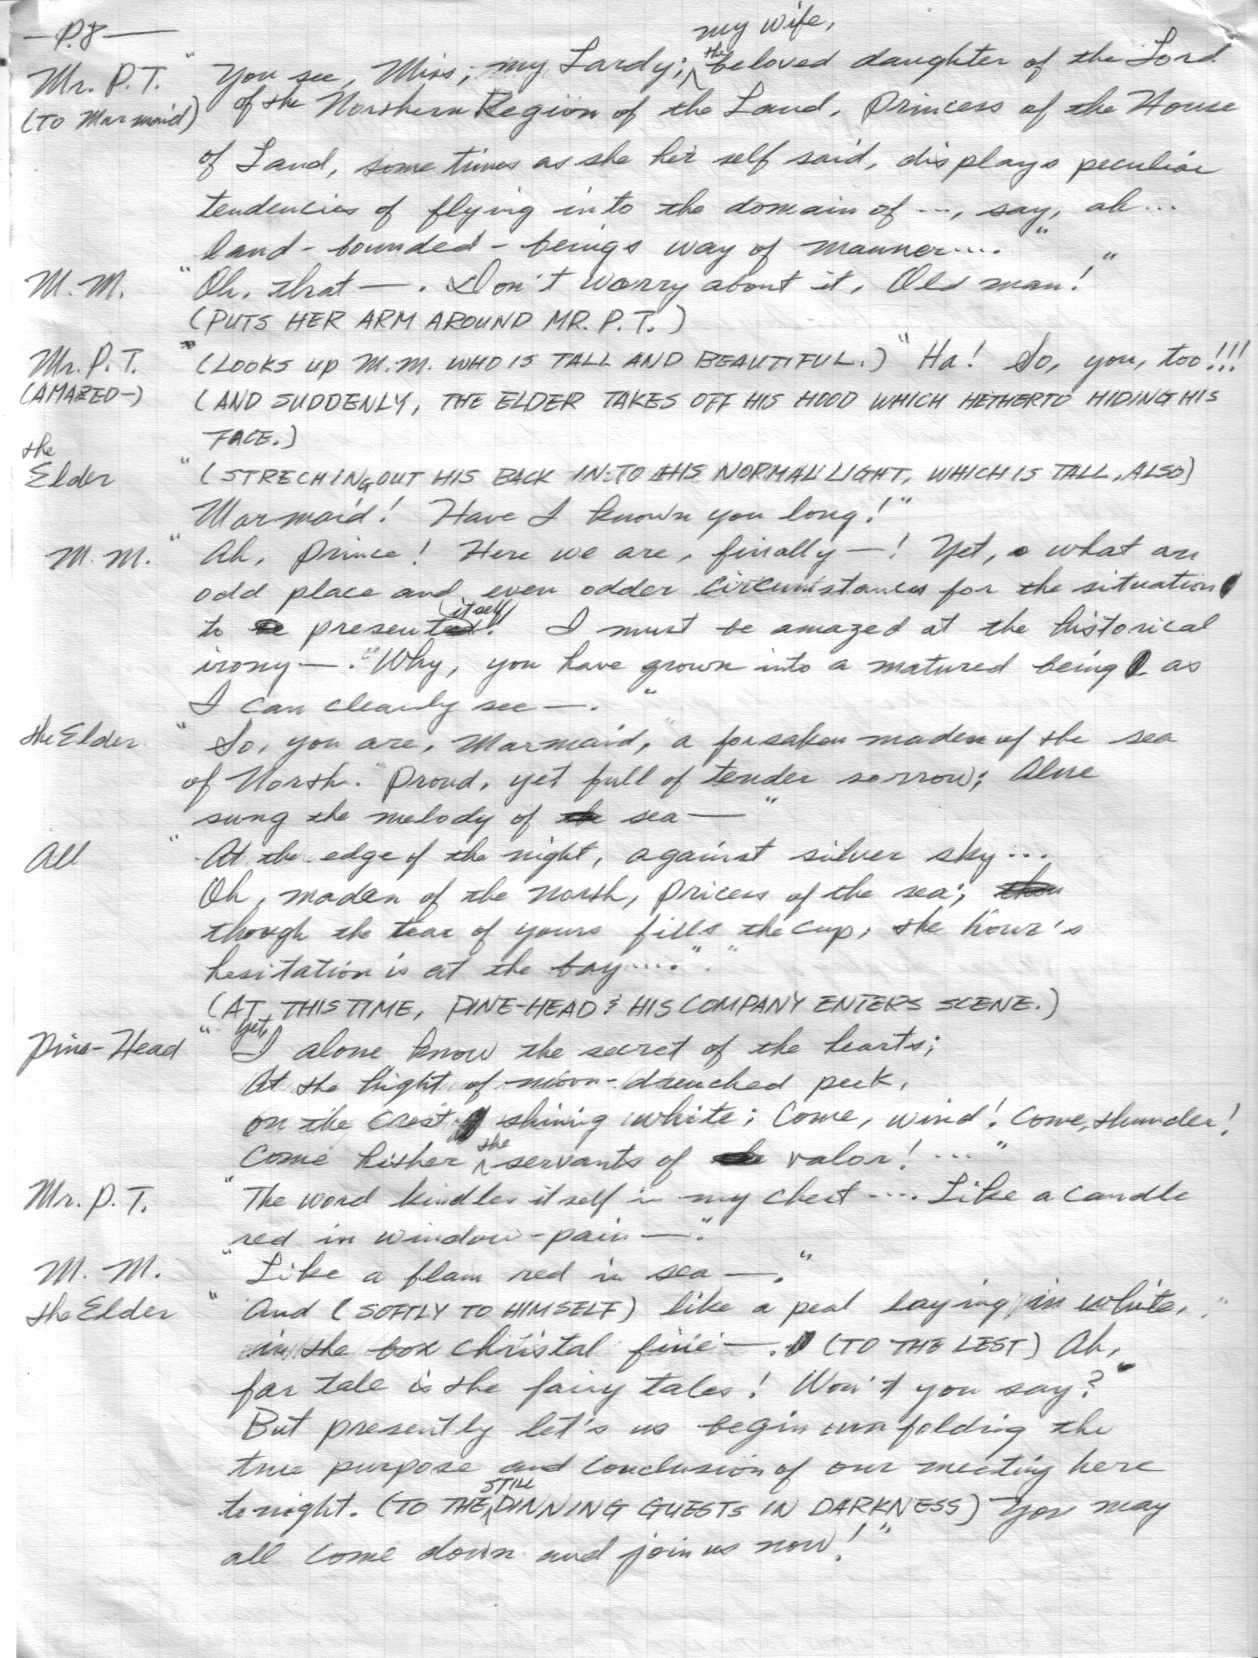 — P.8 —
my wife,
Mr. P.T. "You see, Miss; my Lardy; the beloved daughter of the Lord
(To Marmaid) of the Northern Region of the Land, Princess of the House
of Land, some times as she her self said, displays peculiar
tendencies of flying into the domain of ..., say, ah...
land-bounded-beings way of manner...."
M.M. "Oh, that —. Don't worry about it, Old man!"
(PUTS HER ARM AROUND MR. P.T.)
Mr. P.T. (LOOKS UP M.M. WHO IS TALL AND BEAUTIFUL.) "Ha! So, you, too!!!
(AMAZED-) (AND SUDDENLY, THE ELDER TAKES OFF HIS HOOD WHICH HETHERTO HIDING HIS
FACE.)
the
Elder "(STRECHING OUT HIS BACK INTO HIS NORMAL LIGHT, WHICH IS TALL, ALSO)
Marmaid! Have I known you long!"
M.M. "Ah, Prince! Here we are, finally —! Yet, what an
odd place and even odder circumstances for the situation
to present itself! I must be amazed at the historical
irony —. "Why, you have grown into a matured being as
I can clearly see —."
the Elder "So, you are, Marmaid, a forsaken maden of the sea
of North. Proud, yet full of tender sorrow; Alne
sung the melody of sea —"
All "At the edge of the night, against silver sky...
Oh, maden of the North, pricess of the sea;
though the tear of yours fills the cup, the hour's
hesitation is at the bay....".
(AT THIS TIME, PINE-HEAD & HIS COMPANY ENTERS SCENE.)
Pine-Head "Yet, I alone know the secret of the hearts;
At the hight of moon-drenched peek,
on the crest shining white; Come, wind! Come, thunder!
Come hither the servants of valor! ..."
Mr. P.T. "The word kindles itself in my chest .... Like a candle
red in window-pain —."
M.M. "Like a flam red in sea —."
the Elder "And (SOFTLY TO HIMSELF) like a peal laying in white,
in the box christal fine —. (TO THE LEST) Ah,
far tale is the fairy tales! Won't you say?
But presently let's us begin unfolding the
true purpose and conclusion of our meeting here
tonight. (TO THE STILL DINNING GUESTS IN DARKNESS) You may
all come down and join us now!"